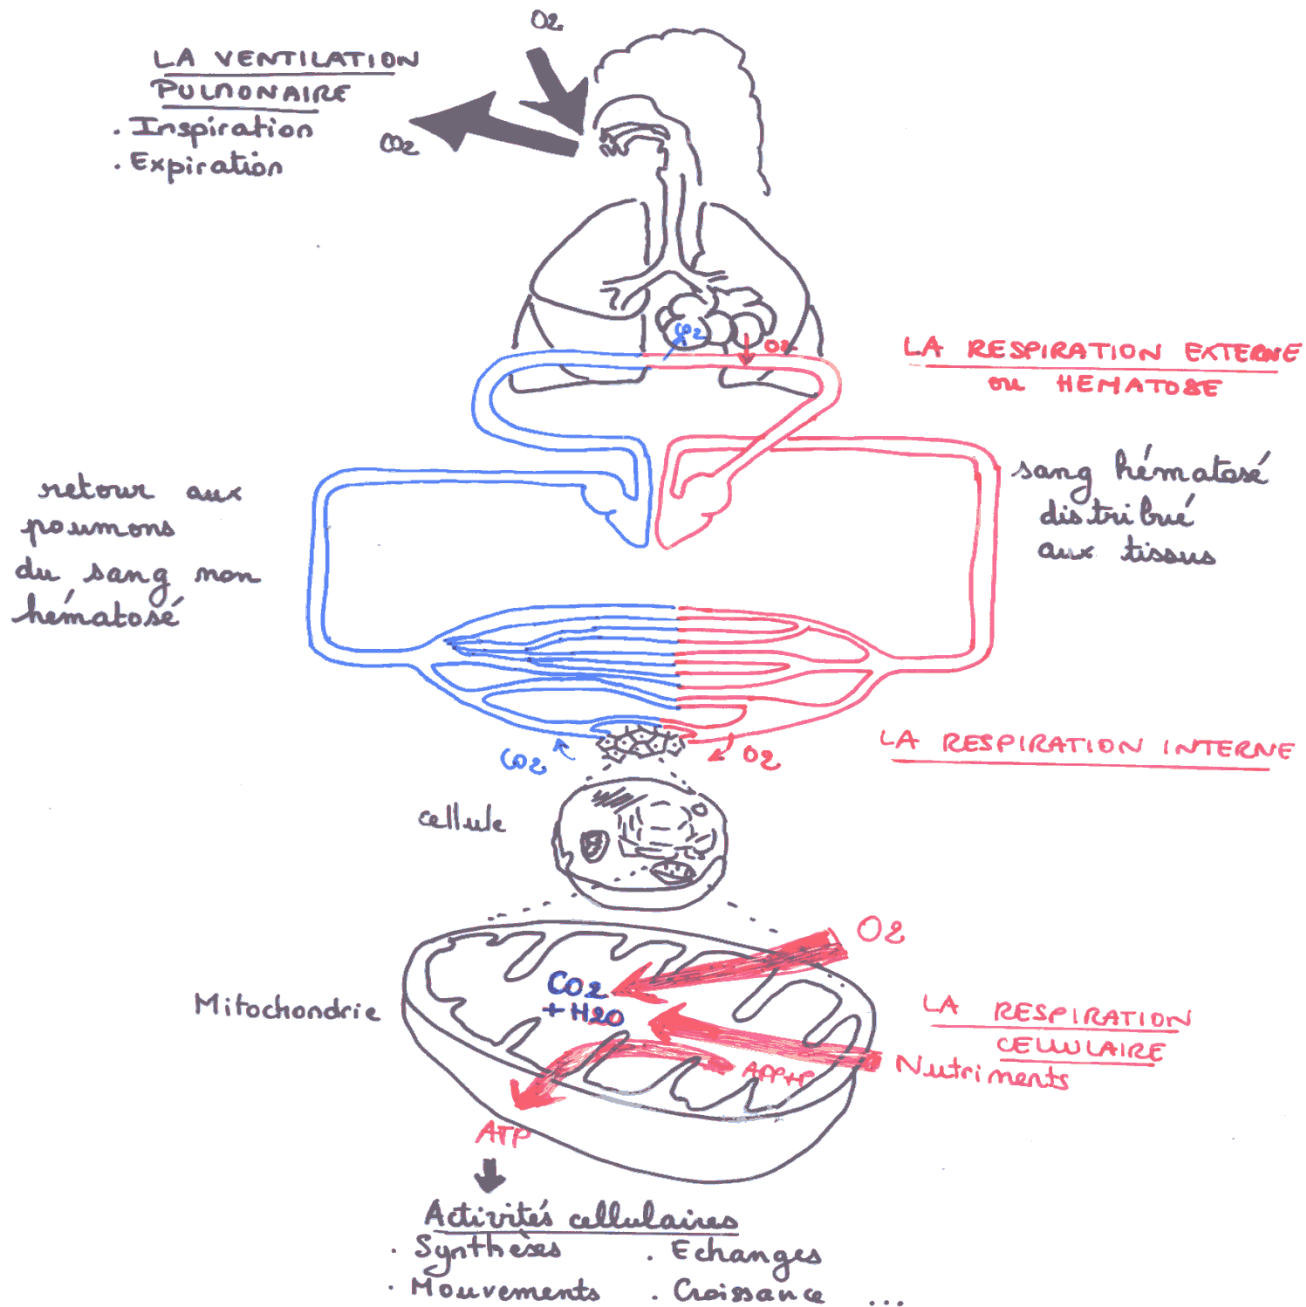 O2
LA VENTILATION
PULMONAIRE
. Inspiration
. Expiration
CO2
CO2
O2
LA RESPIRATION EXTERNE
ou HEMATOSE
retour aux
poumons
du sang non
hématosé
sang hématosé
distribué
aux tissus
CO2
O2
LA RESPIRATION INTERNE
cellule
O2
CO2
+ H2O
Mitochondrie
LA RESPIRATION
CELLULAIRE
Nutriments
ADP+P
ATP
Activités cellulaires
. Synthèses
. Echanges
. Mouvements
. Croissance ...